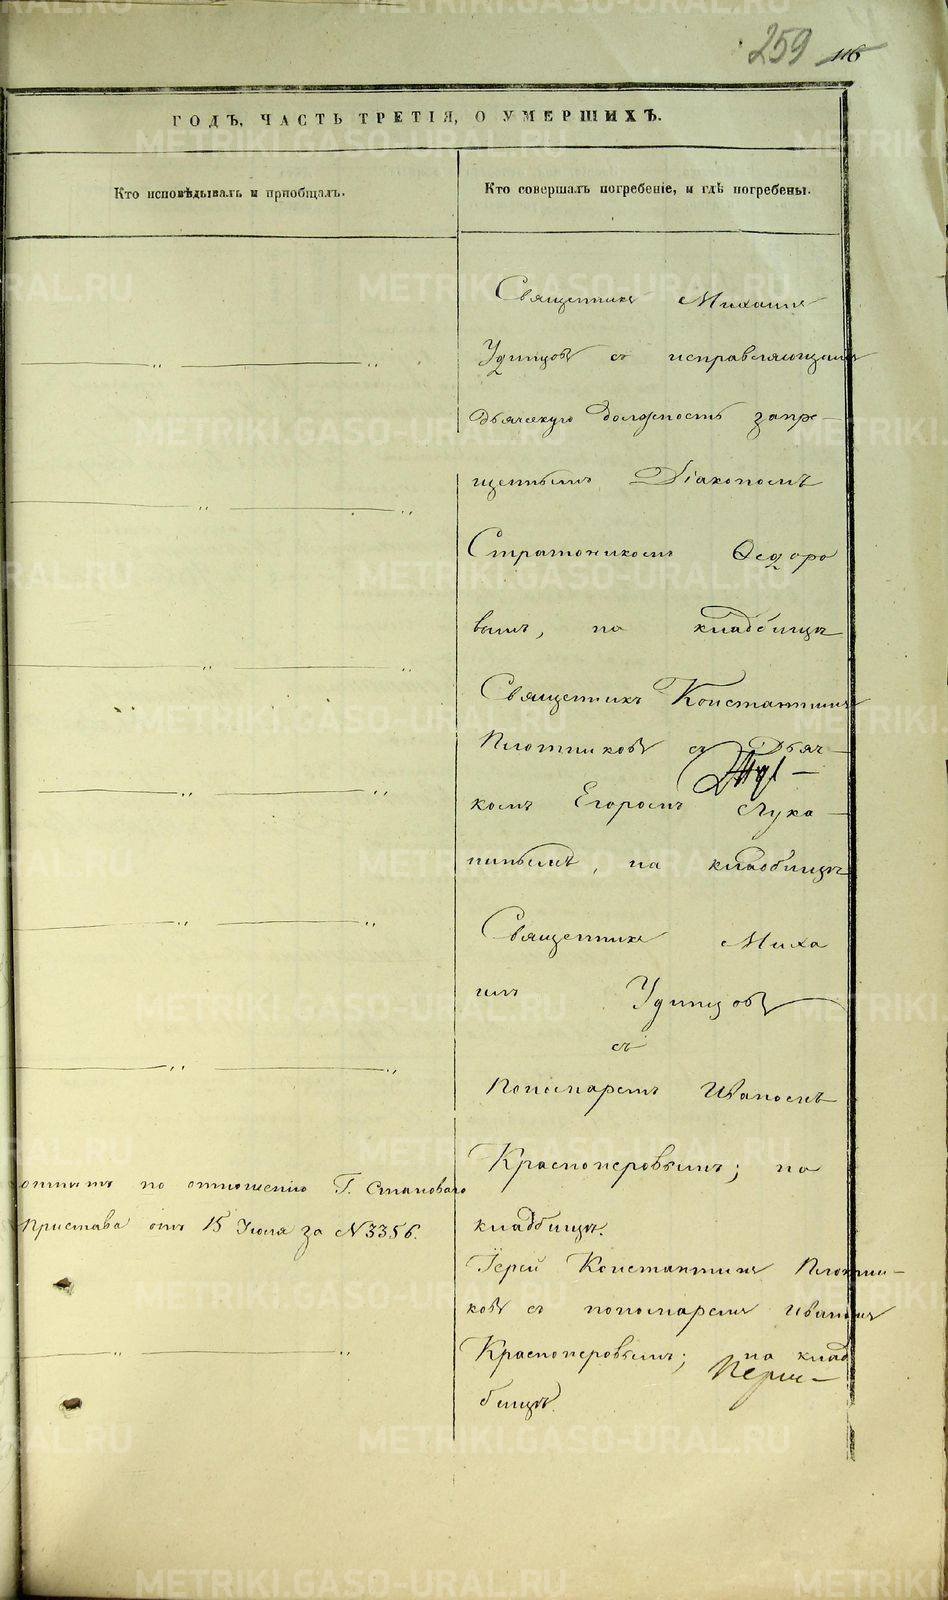 259 116
ГОДЪ, ЧАСТЬ ТРЕТІЯ, О УМЕРШИХЪ.
Кто исповѣдывалъ и пріобщалъ.
Кто совершалъ погребеніе, и гдѣ погребены.
Священникъ Михаилъ
Удинцовъ съ исправляющимъ
дьяческую должность запре-
щеннымъ Діакономъ
Стратоникомъ Ѳедоро
вымъ, на кладбищѣ
Священникъ Константинъ
Плотниковъ съ Дьяч-
комъ Егоромъ Лука-
нинымъ, на кладбищѣ
Священникъ Миха
илъ Удинцовъ
съ
Пономаремъ Иваномъ
Красноперовымъ; на
кладбищѣ.
по отношенію Г. Становаго
Пристава отъ 15 Іюля за № 3356.
Іерей Константинъ Плотни-
ковъ съ пономаремъ Иваномъ
Красноперовымъ; на клад
бищѣ.
METRIKI.GASO-URAL.RU